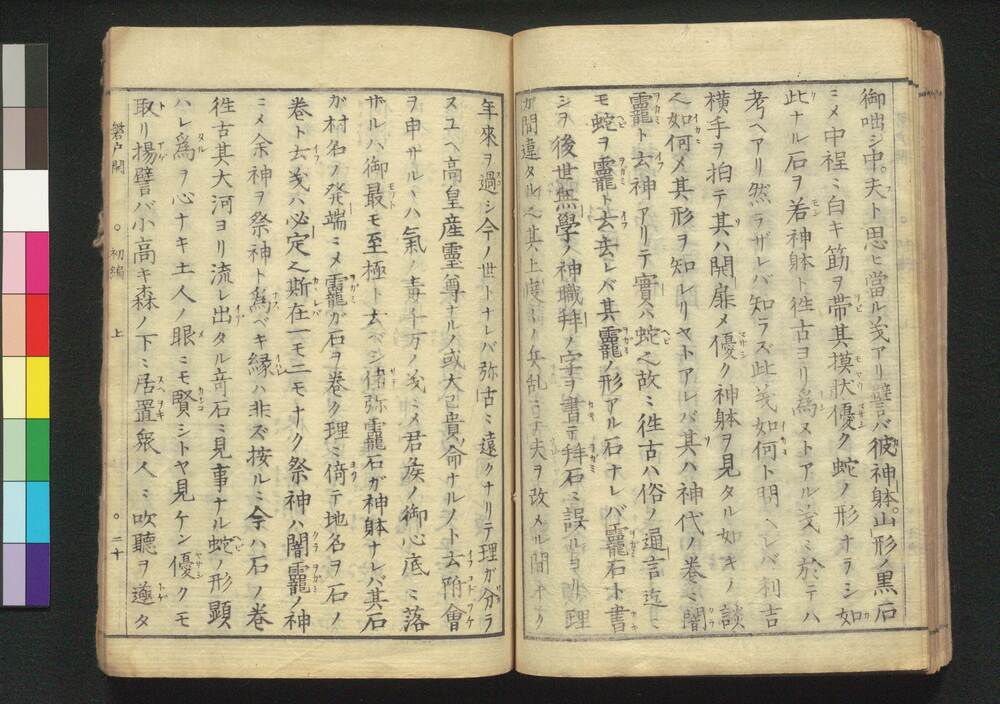 御咄シ中。夫ト思ヒ當ルノ義アリ譬バ彼神躰。山形ノ黒石
ニメ中程ニ白キ筋ヲ帯其摸狀優ク蛇ノ形ナラシ如
此ナル石ヲ若神躰ト徃古ヨリ爲ストアル義ニ於テハ
考ヘアリ然ラザレバ知ラズ此義如何ト問ヘレバ利吉
横手ヲ拍テ其ハ開扉メ優ク神躰ヲ見タル如キノ談
之如何メ其形ヲ知レリヤトアレバ其ハ神代ノ巻ニ闇
靇ト云神アリテ實ハ蛇之故ニ徃古ハ俗ノ通言迄ニ
モ蛇ヲ靇ト云去レバ其靇ノ形アル石ナレバ靇石ト書
シヲ後世無學ノ神職拜ノ字ヲ書テ拜石ニ誤ルヲ非理
ガ間違タル之其上度々ノ兵乱ニテ夫ヲ改メル間ナク
年來ヲ過シ今ノ世トナレバ弥古ニ遠クナリテ理ガ分ラ
ヌユヘ高皇産靈尊ナルノ或大己貴命ナルノト云附會
ヲ申サルヽハ氣ノ毒千万ノ義ニメ君矦ノ御心底ニ落
ザルハ御最モ至極ト云ベシ偖弥靇石ガ神躰ナレバ其石
ガ村名ノ発端ニメ靇ガ石ヲ巻ク理ニ倚テ地名ヲ石ノ
巻ト云義ハ必定之斯在一モ二モナク祭神ハ闇靇ノ神
ニメ余神ヲ祭神ト爲ベキ縁ハ非ズ按ルニ今ハ石ノ巻
徃古其大河ヨリ流レ出タル竒石ニ見事ナル蛇ノ形顕
ハレ爲ヲ心ナキ土人ノ眼ニモ賢シトヤ見ケン優クモ
取リ揚譬バ小高キ森ノ下ニ居置衆人ニ吹聴ヲ遂タ
磐戸開 ○ 初編 上 ○ 二十